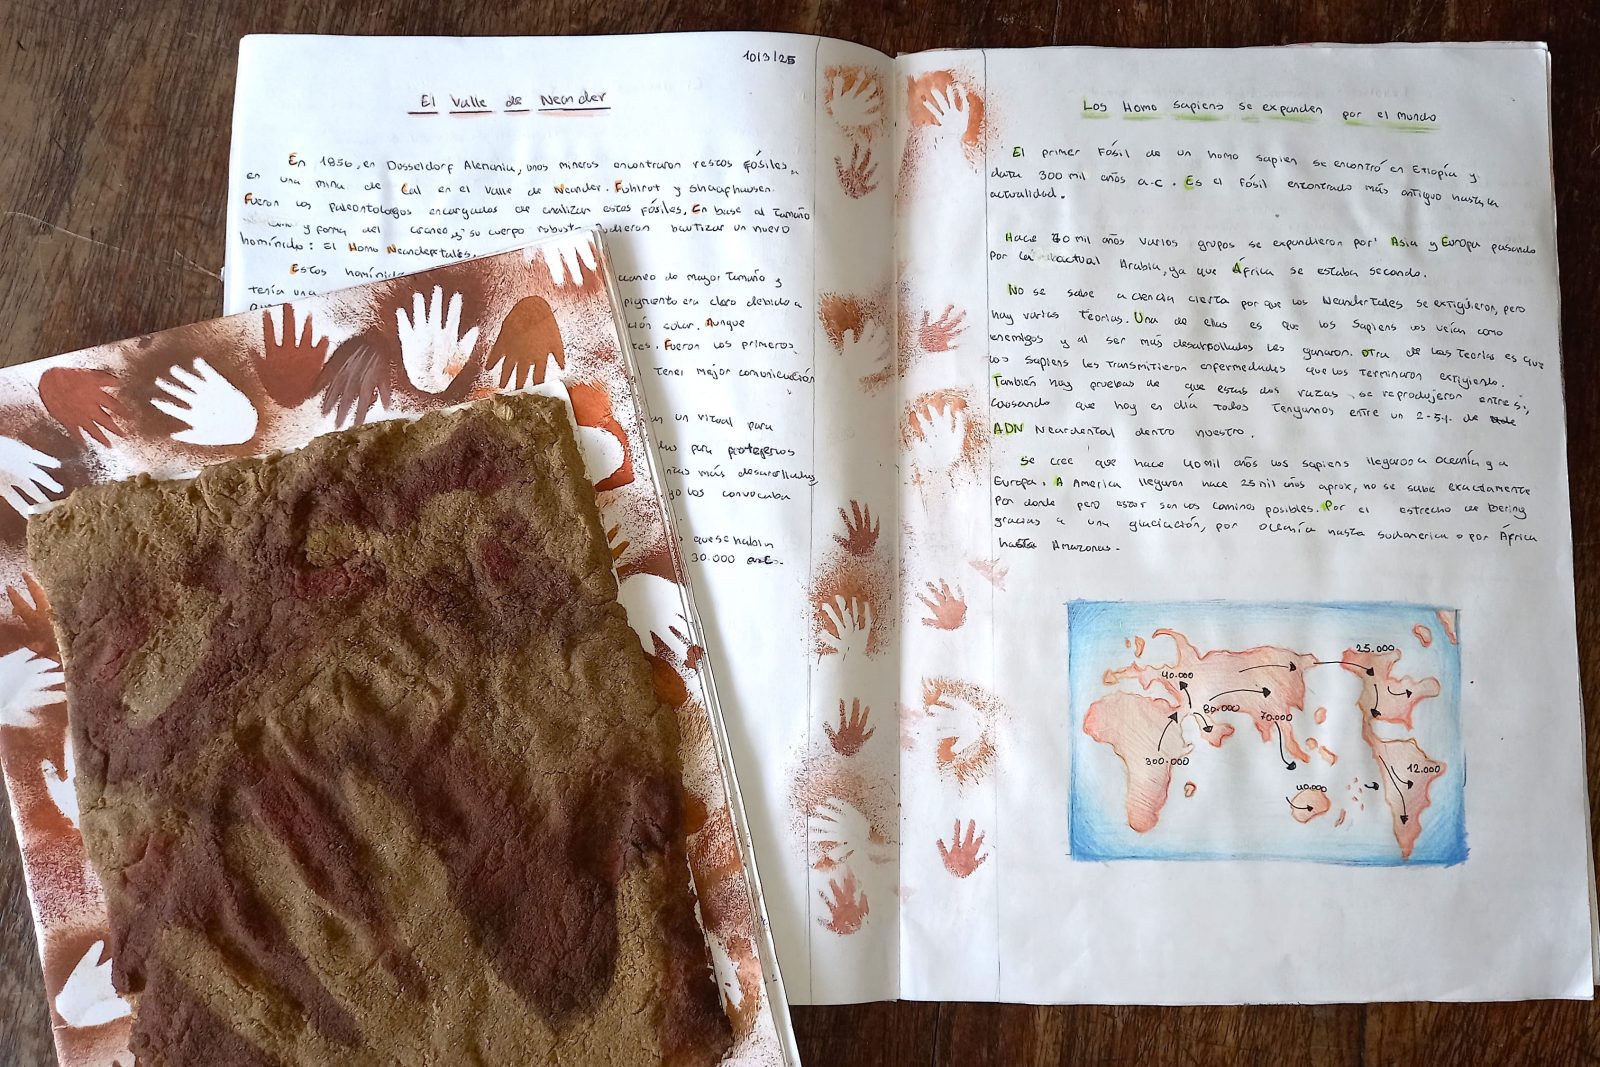 10/3/25
El Valle de Neander
En 1856, en Dosseldorf Alemania, unos mineros encontraron restos fósiles
en una mina de Cal en el Valle de Neander. Fuhlrot y Shaaphausen
Fueron los paleontologos encargados de analizar estos fósiles. En base al tamaño
y forma del craneo y su cuerpo robusto pudieran bautizar un nuevo
homínido: El Homo Neandertales.
Estos homínid
craneo de mayor tamaño y
tenía una
pigmento era claro debido a
ción solar. Aunque
tes. Fueron los primeros
tener mejor comunicación
un ritual para
para protegernos
más desarolladas
yo los convocaba
que se habían
30.000 a.C.
Los Homo Sapiens se expanden por el mundo
El primer Fósil de un homo sapien se encontró en Etiopía y
data 300 mil años a.c. Es el fósil encontrado más antiguo hasta la
actualidad.
Hace 70 mil años varios grupos se expandieron por Asia y Europa pasando
por la actual Arabia, ya que África se estaba secando.
No se sabe a ciencia cierta por que los Neandertales se extigüieron, pero
hay varias teorías. Una de ellas es que los Sapiens los veían como
enemigos y al ser más desarrollados les ganaron. otra de las teorías es que
los sapiens les transmitieron enfermedades que los terminaron extigiendo.
También hay pruebas de que estas dos razas se reprodujeron entre si,
causando que hoy en día todos tengamos entre un 2-5% de
ADN Neardental dentro nuestro.
Se cree que hace 40 mil años los sapiens llegaron a oceanía y a
Europa. A America llegaron hace 25 mil años aprox, no se sabe exactamente
por donde pero estos son los caminos posibles. Por el estrecho de Bering
gracias a una glaciación, por oceanía hasta sudamerica o por África
hasta Amazonas.
25.000
40.000
80.000
70.000
300.000
12.000
40.000